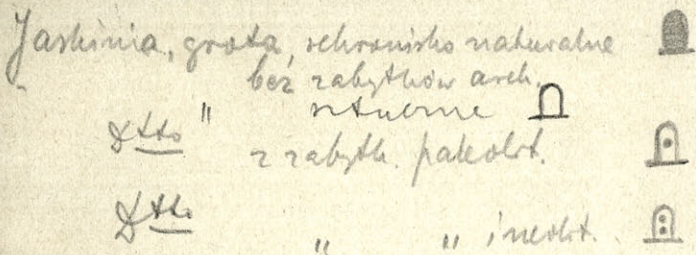 Jaskinia, grota, schronisko naturalne
bez zabytków arch.
" sztuczne
Dtto z zabytk. paleolit.
Dtto " " i neolit.